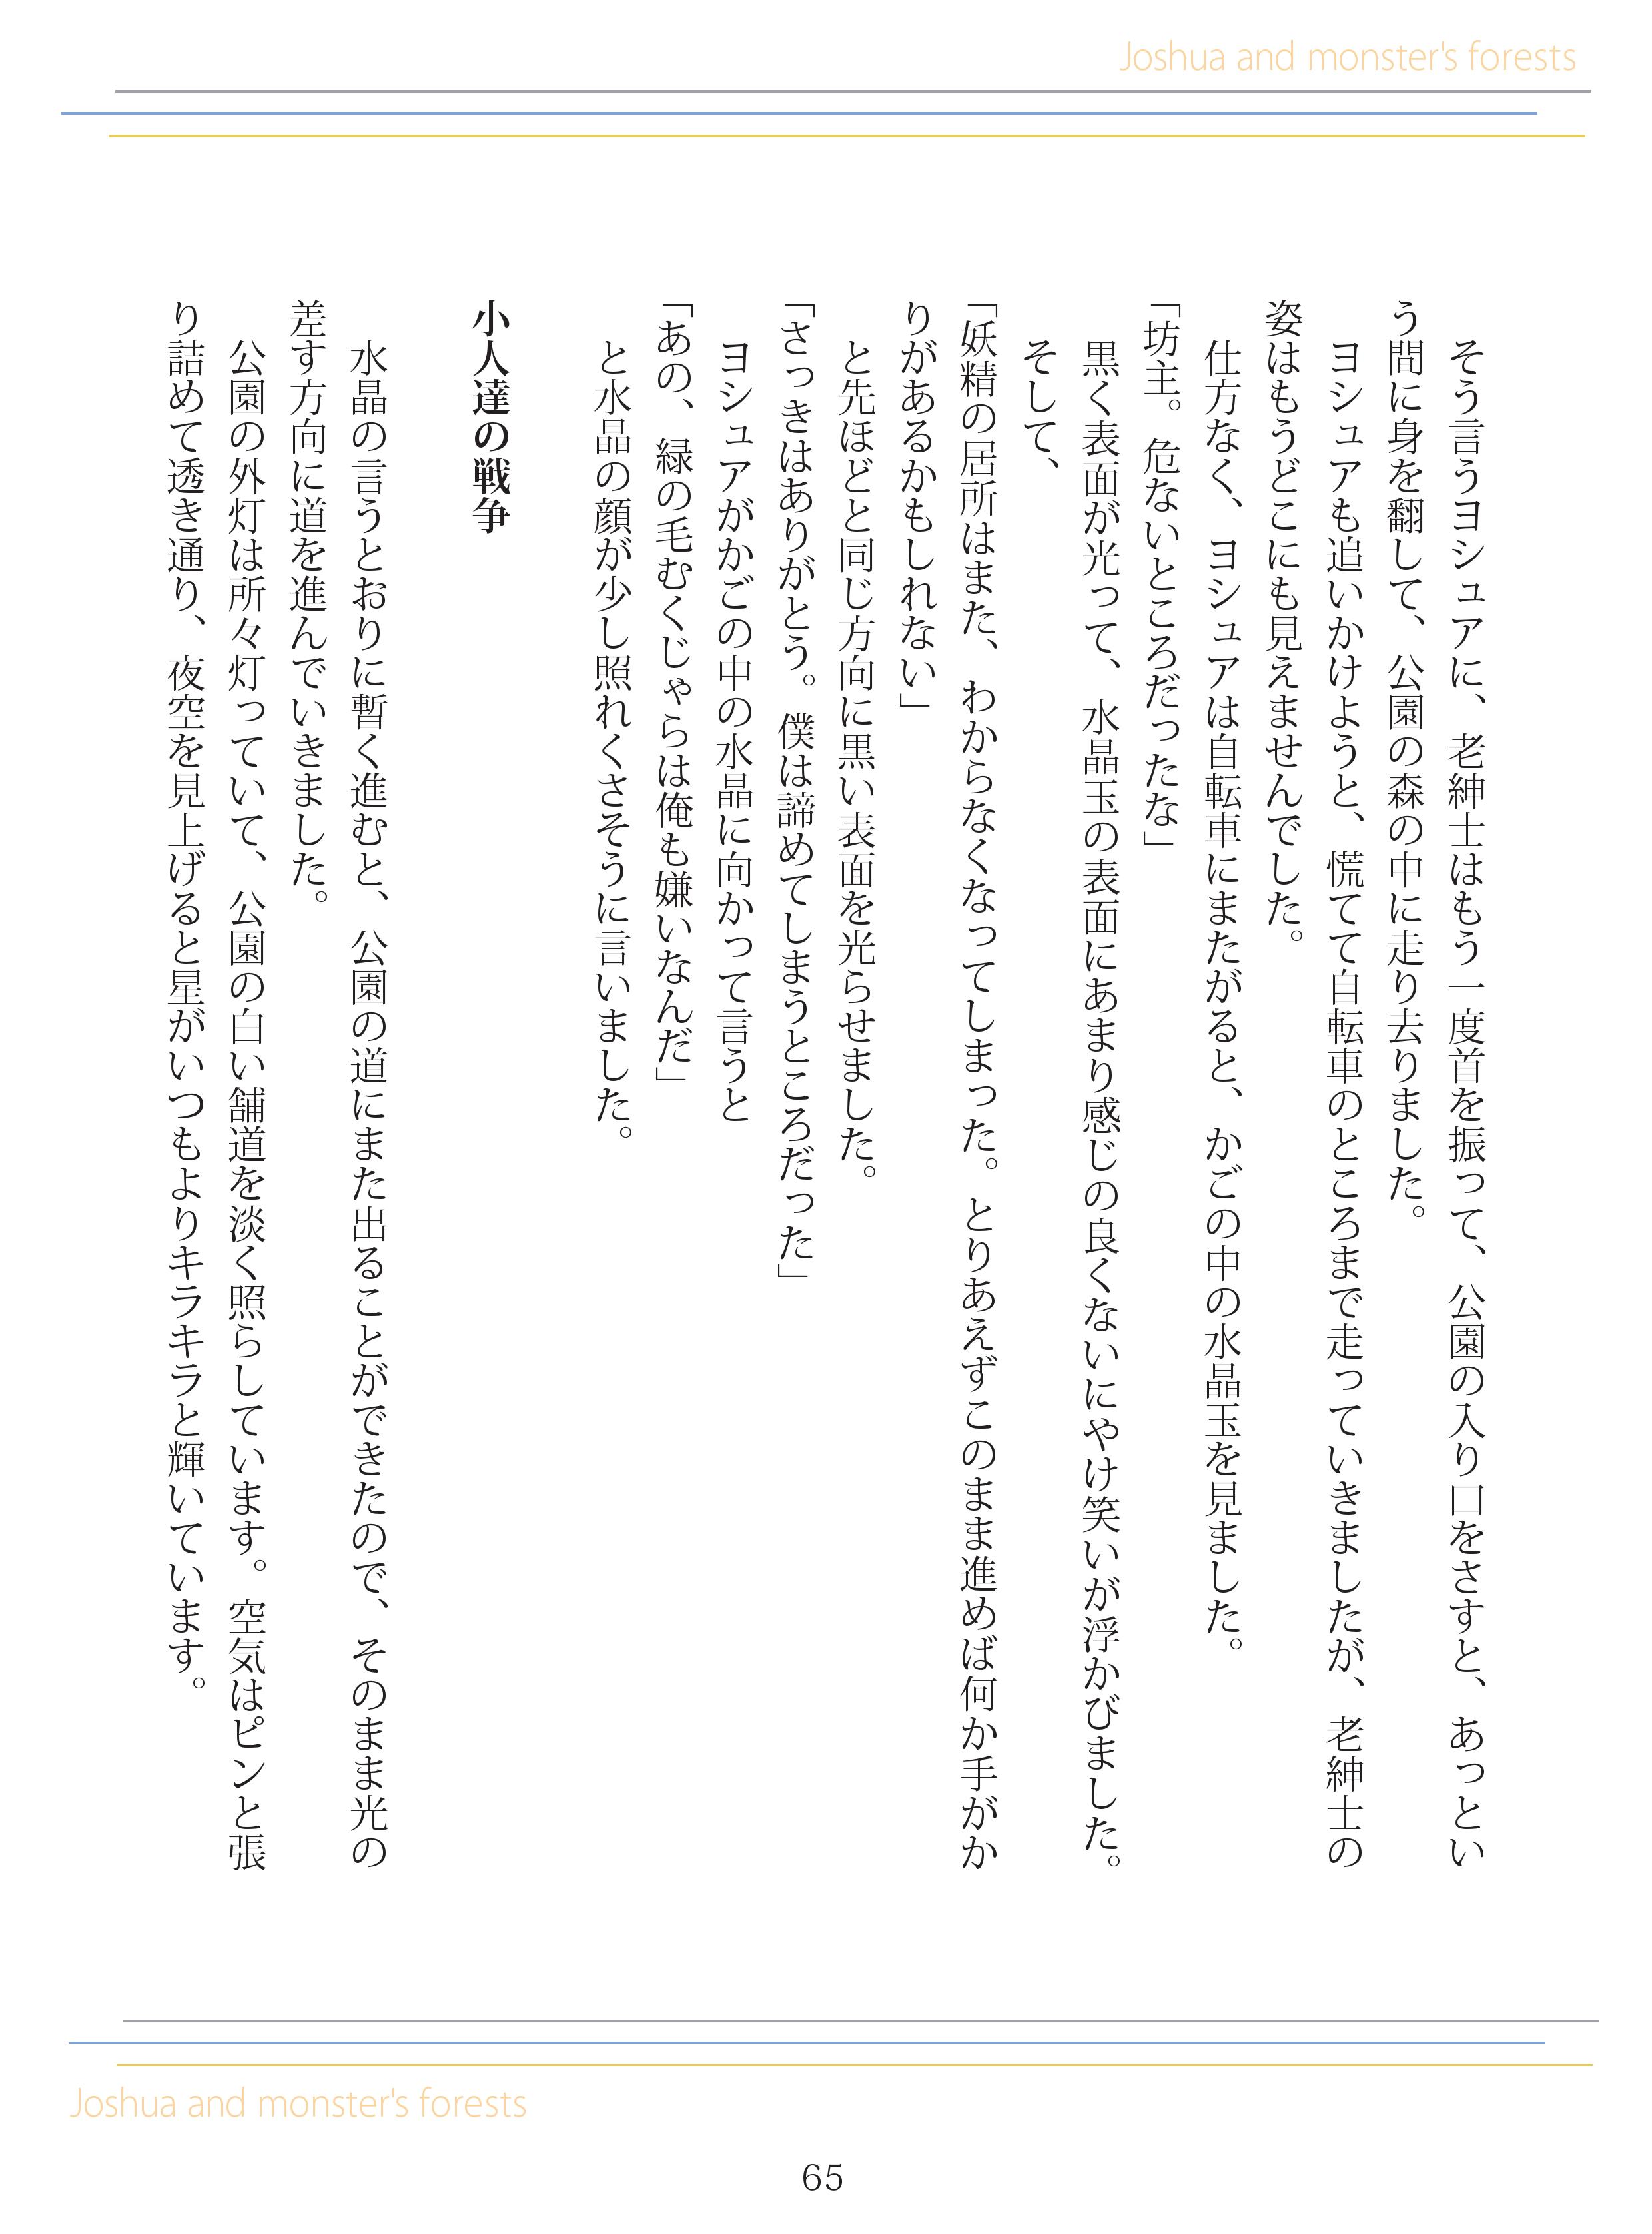 Joshua and monster's forests
そう言うヨシュアに、老紳士はもう一度首を振って、公園の入り口をさすと、あっとい
う間に身を翻して、公園の森の中に走り去りました。
ヨシュアも追いかけようと、慌てて自転車のところまで走っていきましたが、老紳士の
姿はもうどこにも見えませんでした。
仕方なく、ヨシュアは自転車にまたがると、かごの中の水晶玉を見ました。
「坊主。危ないところだったな」
黒く表面が光って、水晶玉の表面にあまり感じの良くないにやけ笑いが浮かびました。
そして、
「妖精の居所はまた、わからなくなってしまった。とりあえずこのまま進めば何か手がか
りがあるかもしれない」
と先ほどと同じ方向に黒い表面を光らせました。
「さっきはありがとう。僕は諦めてしまうところだった」
ヨシュアがかごの中の水晶に向かって言うと
「あの、緑の毛むくじゃらは俺も嫌いなんだ」
と水晶の顔が少し照れくさそうに言いました。
小人達の戦争
水晶の言うとおりに暫く進むと、公園の道にまた出ることができたので、そのまま光の
差す方向に道を進んでいきました。
公園の外灯は所々灯っていて、公園の白い舗道を淡く照らしています。空気はピンと張
り詰めて透き通り、夜空を見上げると星がいつもよりキラキラと輝いています。
Joshua and monster's forests
65